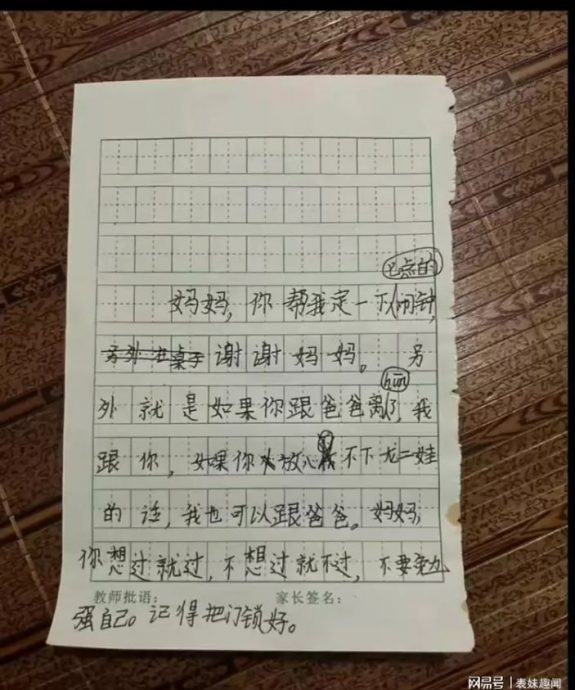 8点的
妈妈，你帮我定一下闹钟，
另外在桌子谢谢妈妈。另
hūn
外就是如果你跟爸爸离了，我
跟你，如果你放心不下龙二娃
的话，我也可以跟爸爸。妈妈，
你想过就过，不想过就不过，不要勉
教师批语： 家长签名：
强自己。记得把门锁好。
网易号 | 表妹趣闻